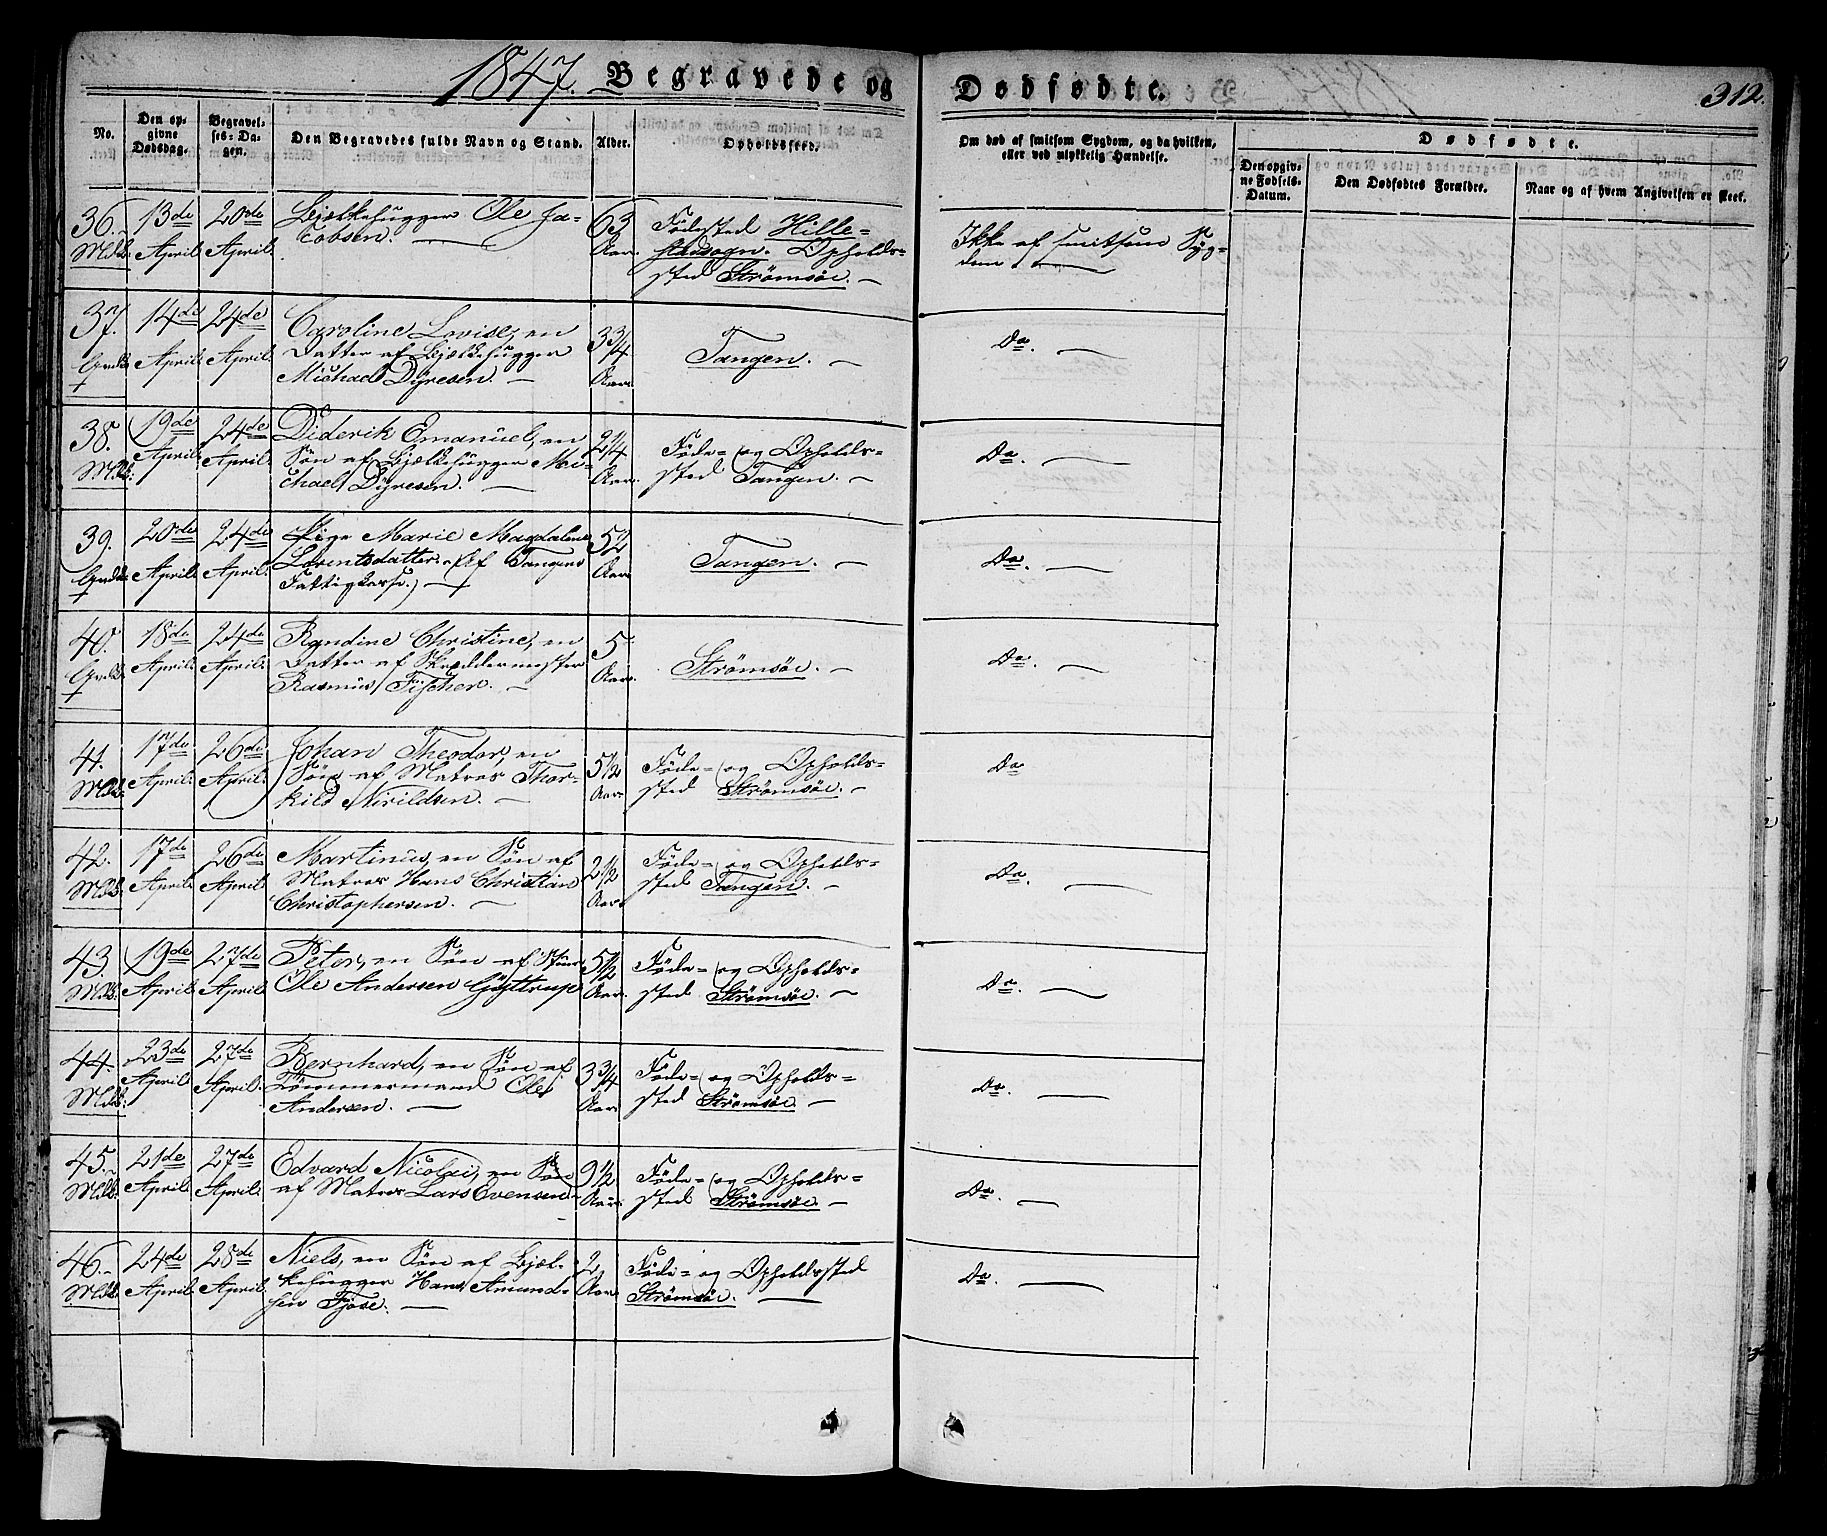 1847. Begravede og Dødfødte. 312.
No.
Den opgivne Dødsdag.
Begravelses-Dagen.
Den Begravedes fulde Navn og Stand.
Alder.
Opholdssted.
Om død af smitsom Sygdom, og da hvilken,
eller ved ulykkelig Hændelse.
Dødfødte.
Den opgivne Fødsels-Datum.
Den Dødfødtes Forældre.
Naar og af hvem Angivelsen er skeet.
36. 13de 20de Bjælkehugger Ole Ja- 63 Fødested Hille- Ikke af smitsom Syg-
Mdk. April April cobsen. Aar. stadsogn. Opholds- dom.
sted Strømsøe.
37. 14de 24de Caroline Lovise, en 3 3/4 Tangen. Do.
Qvdk. April April Datter af Bjælkehugger
Michael Dyresen. Aar.
38. 19de 24de Diderik Emanuel, en 2 1/4 Føde- og Opholds- Do.
Mdk. April April Søn af Bjælkehugger Mi- Aar. sted Tangen.
chael Dyresen.
39. 20de 24de Pige Marie Magdalene 52 Tangen. Do.
Qvdk. April April Lorentsdatter. (Af Tangens Aar.
Fattigkasse.)
40. 18de 24de Randine Christine, en 5 Strømsøe. Do.
Qvdk. April April Datter af Skræddermester Aar.
Rasmus Fischer.
41. 17de 26de Johan Theodor, en 5 1/2 Føde- og Opholds- Do
Mdk. April April Søn af Matros Thor- sted Strømsøe.
kild Nirildsen. Aar.
42. 17de 26de Martinus, en Søn af 2 1/2 Føde- og Opholds- Do
Mdk. April April Matros Hans Christian sted Tangen.
Christophersen. Aar.
43. 19de 27de Peter, en Søn af 5 1/2 Føde- og Opholds- Do.
Mdk. April April Ole Andersen Aar. sted Strømsøe.
44. 23de 27de Bernhard, en Søn af 3 3/4 Føde- og Opholds- Do
Mdk. April April Tømmermand Ole sted Strømsøe.
Andersen. Aar.
45. 21de 27de Edvard Nicolai, en Søn 9 1/2 Føde- og Opholds- Do.
Mdk. April April af Matros Lars Evensen. Aar. sted Strømsøe.
46. 24de 28de Niels, en Søn af Bjæl- 2 Føde- og Opholdssted Do.
Mdk. April April kehugger Hans Amund- Aar. Strømsøe.
sen Fjøse.